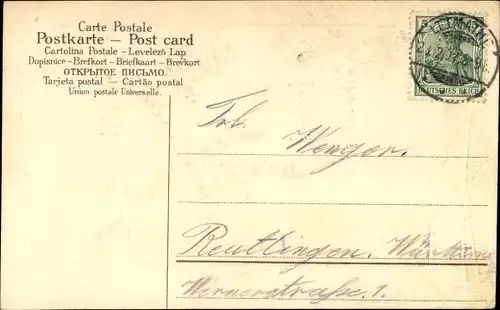 Carte Postale
Postkarte — Post card
Cartolina Postale - Levelező Lap
Dopisnice - Brefkort - Briefkaart - Brevkort
ОТКРЫТОЕ ПИСЬМО.
Tarjeta postal — Cartão postal
Union postale Universelle.
DEUTSCHES REICH
Frl.
Wenger.
Reutlingen. Württem
Wernerstraße. 1.